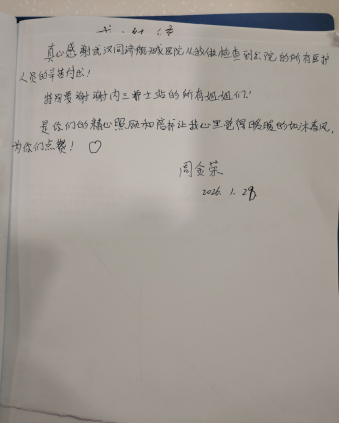 感谢信
真心感谢武汉同济航天城医院从我做检查到出院的所有医护
人员的辛苦付出！
特别要谢谢内三护士站的所有姐姐们！
是你们的精心照顾和陪护让我心里觉得暖暖的如沐春风，
为你们点赞！♡
周金荣
2026.1.29